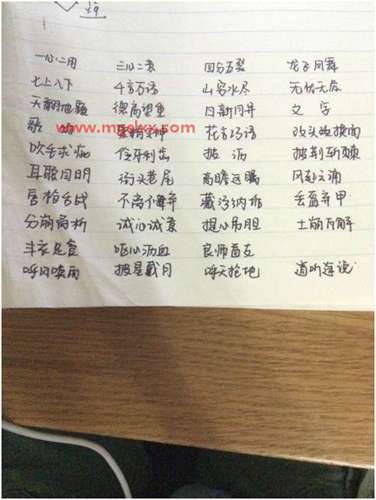 一心二用 三心二意 四分五裂 龙飞凤舞
七上八下 千言万语 山穷水尽 无忧无虑
天翻地覆 德高望重 日新月异 文 字
歌 精神 花言巧语 改头换面
www.m
吹毛求疵 伶牙利齿 披 沥 披荆斩棘
耳聪目明 街头巷尾 高瞻远瞩 风起云涌
唇枪舌战 不 藏污纳垢 丢盔弃甲
分崩离析 诚心诚意 提心吊胆 土崩瓦解
丰衣足食 呕心沥血 良师益友
呼风唤雨 披星戴月 呼天抢地 道听途说